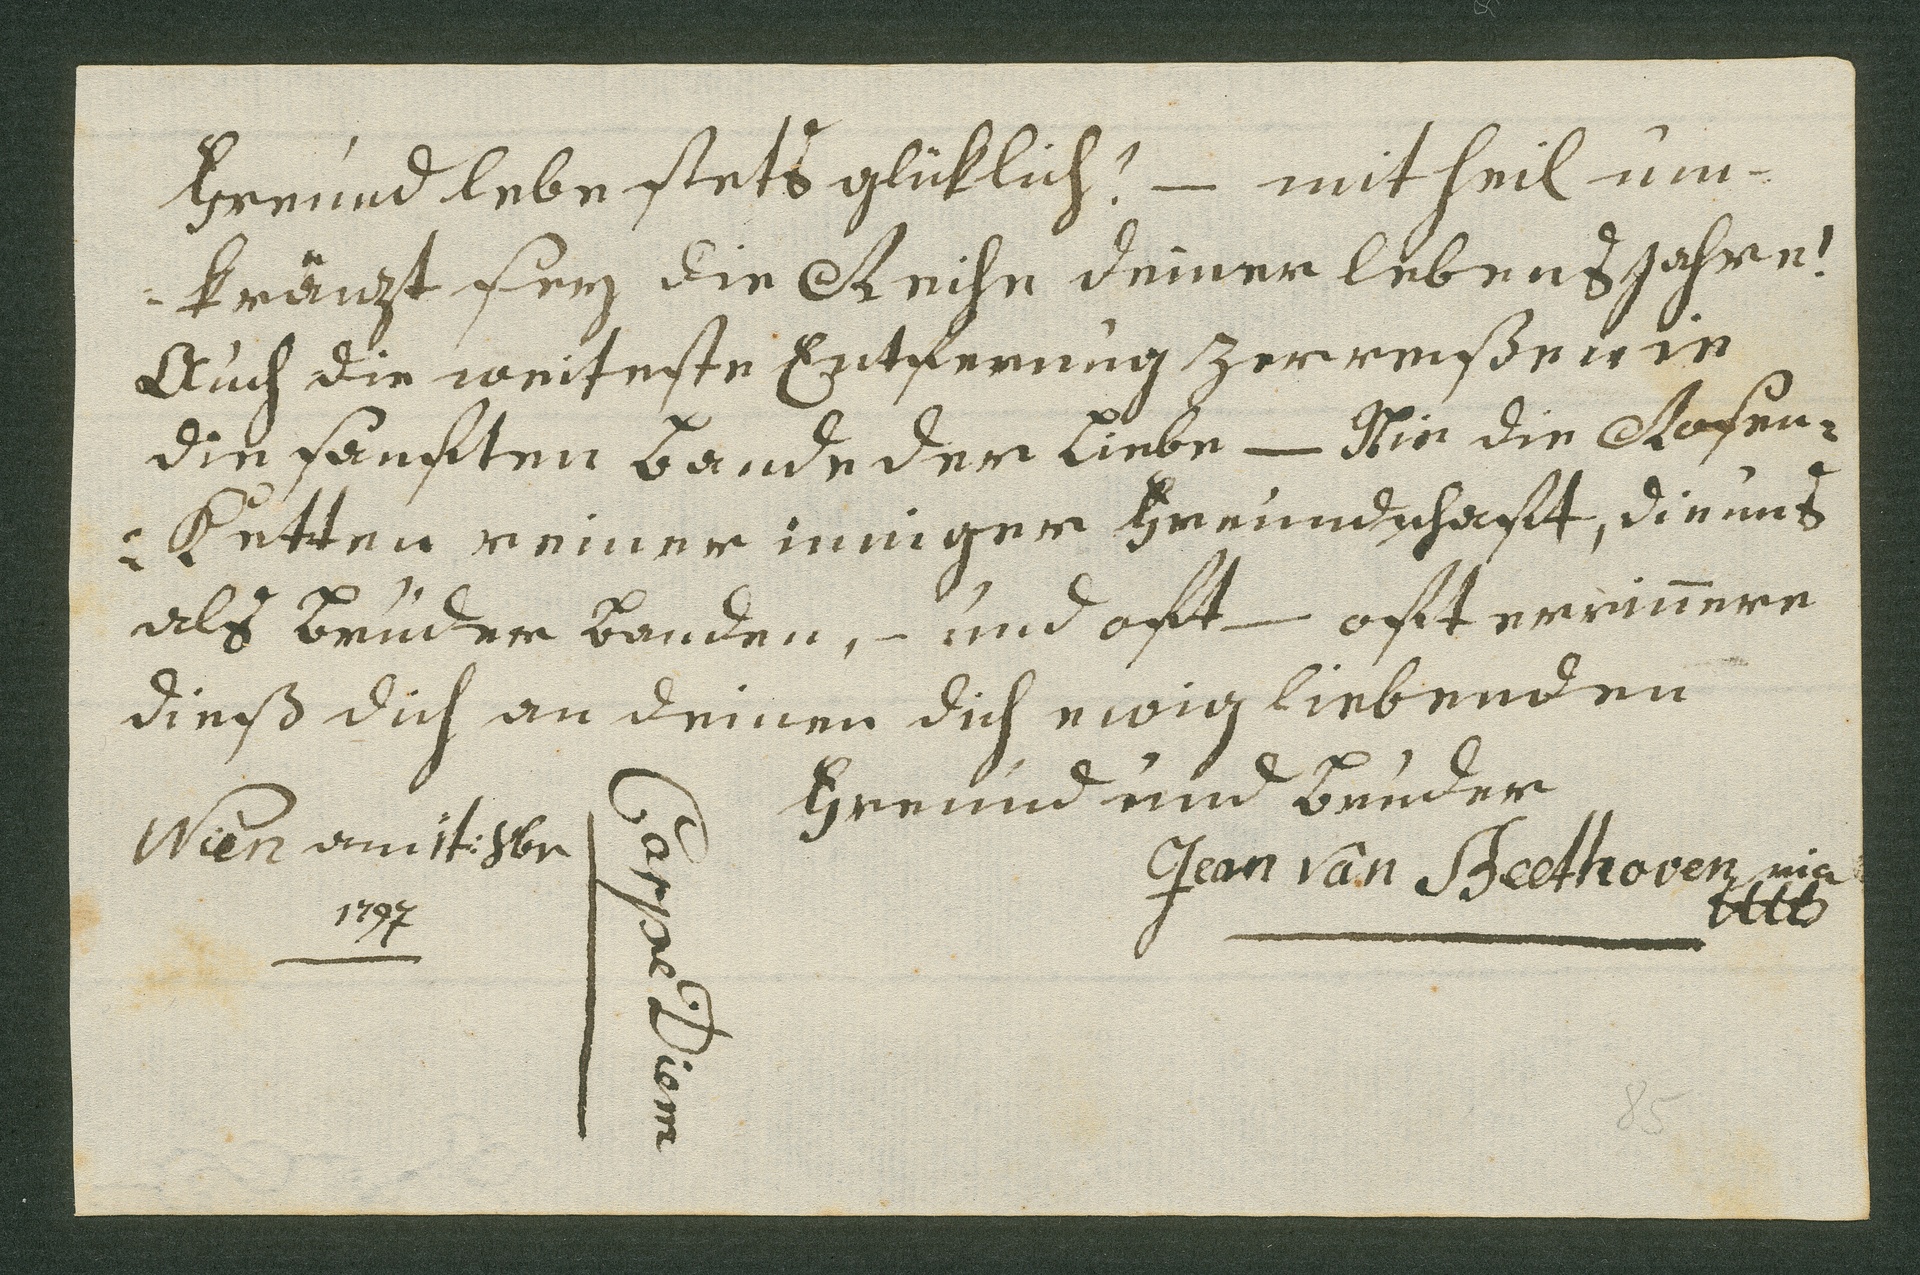 Freund lebe stets glüklich! — mit heil um-
-kränzt sey die Reihe deiner lebens Jahre!
Auch die weiteste Entfernung zerreiße nie
die sanften Bande der Liebe — Nie die Rosen-
-Ketten reiner inniger Freundschaft, die uns
als Brüder banden, – und oft — oft errinnere
dieß dich an deinen dich ewig liebenden
Freund und Bruder
Jean van Beethoven
Wien am 1t: 8br
1797
Carpe Diem
85